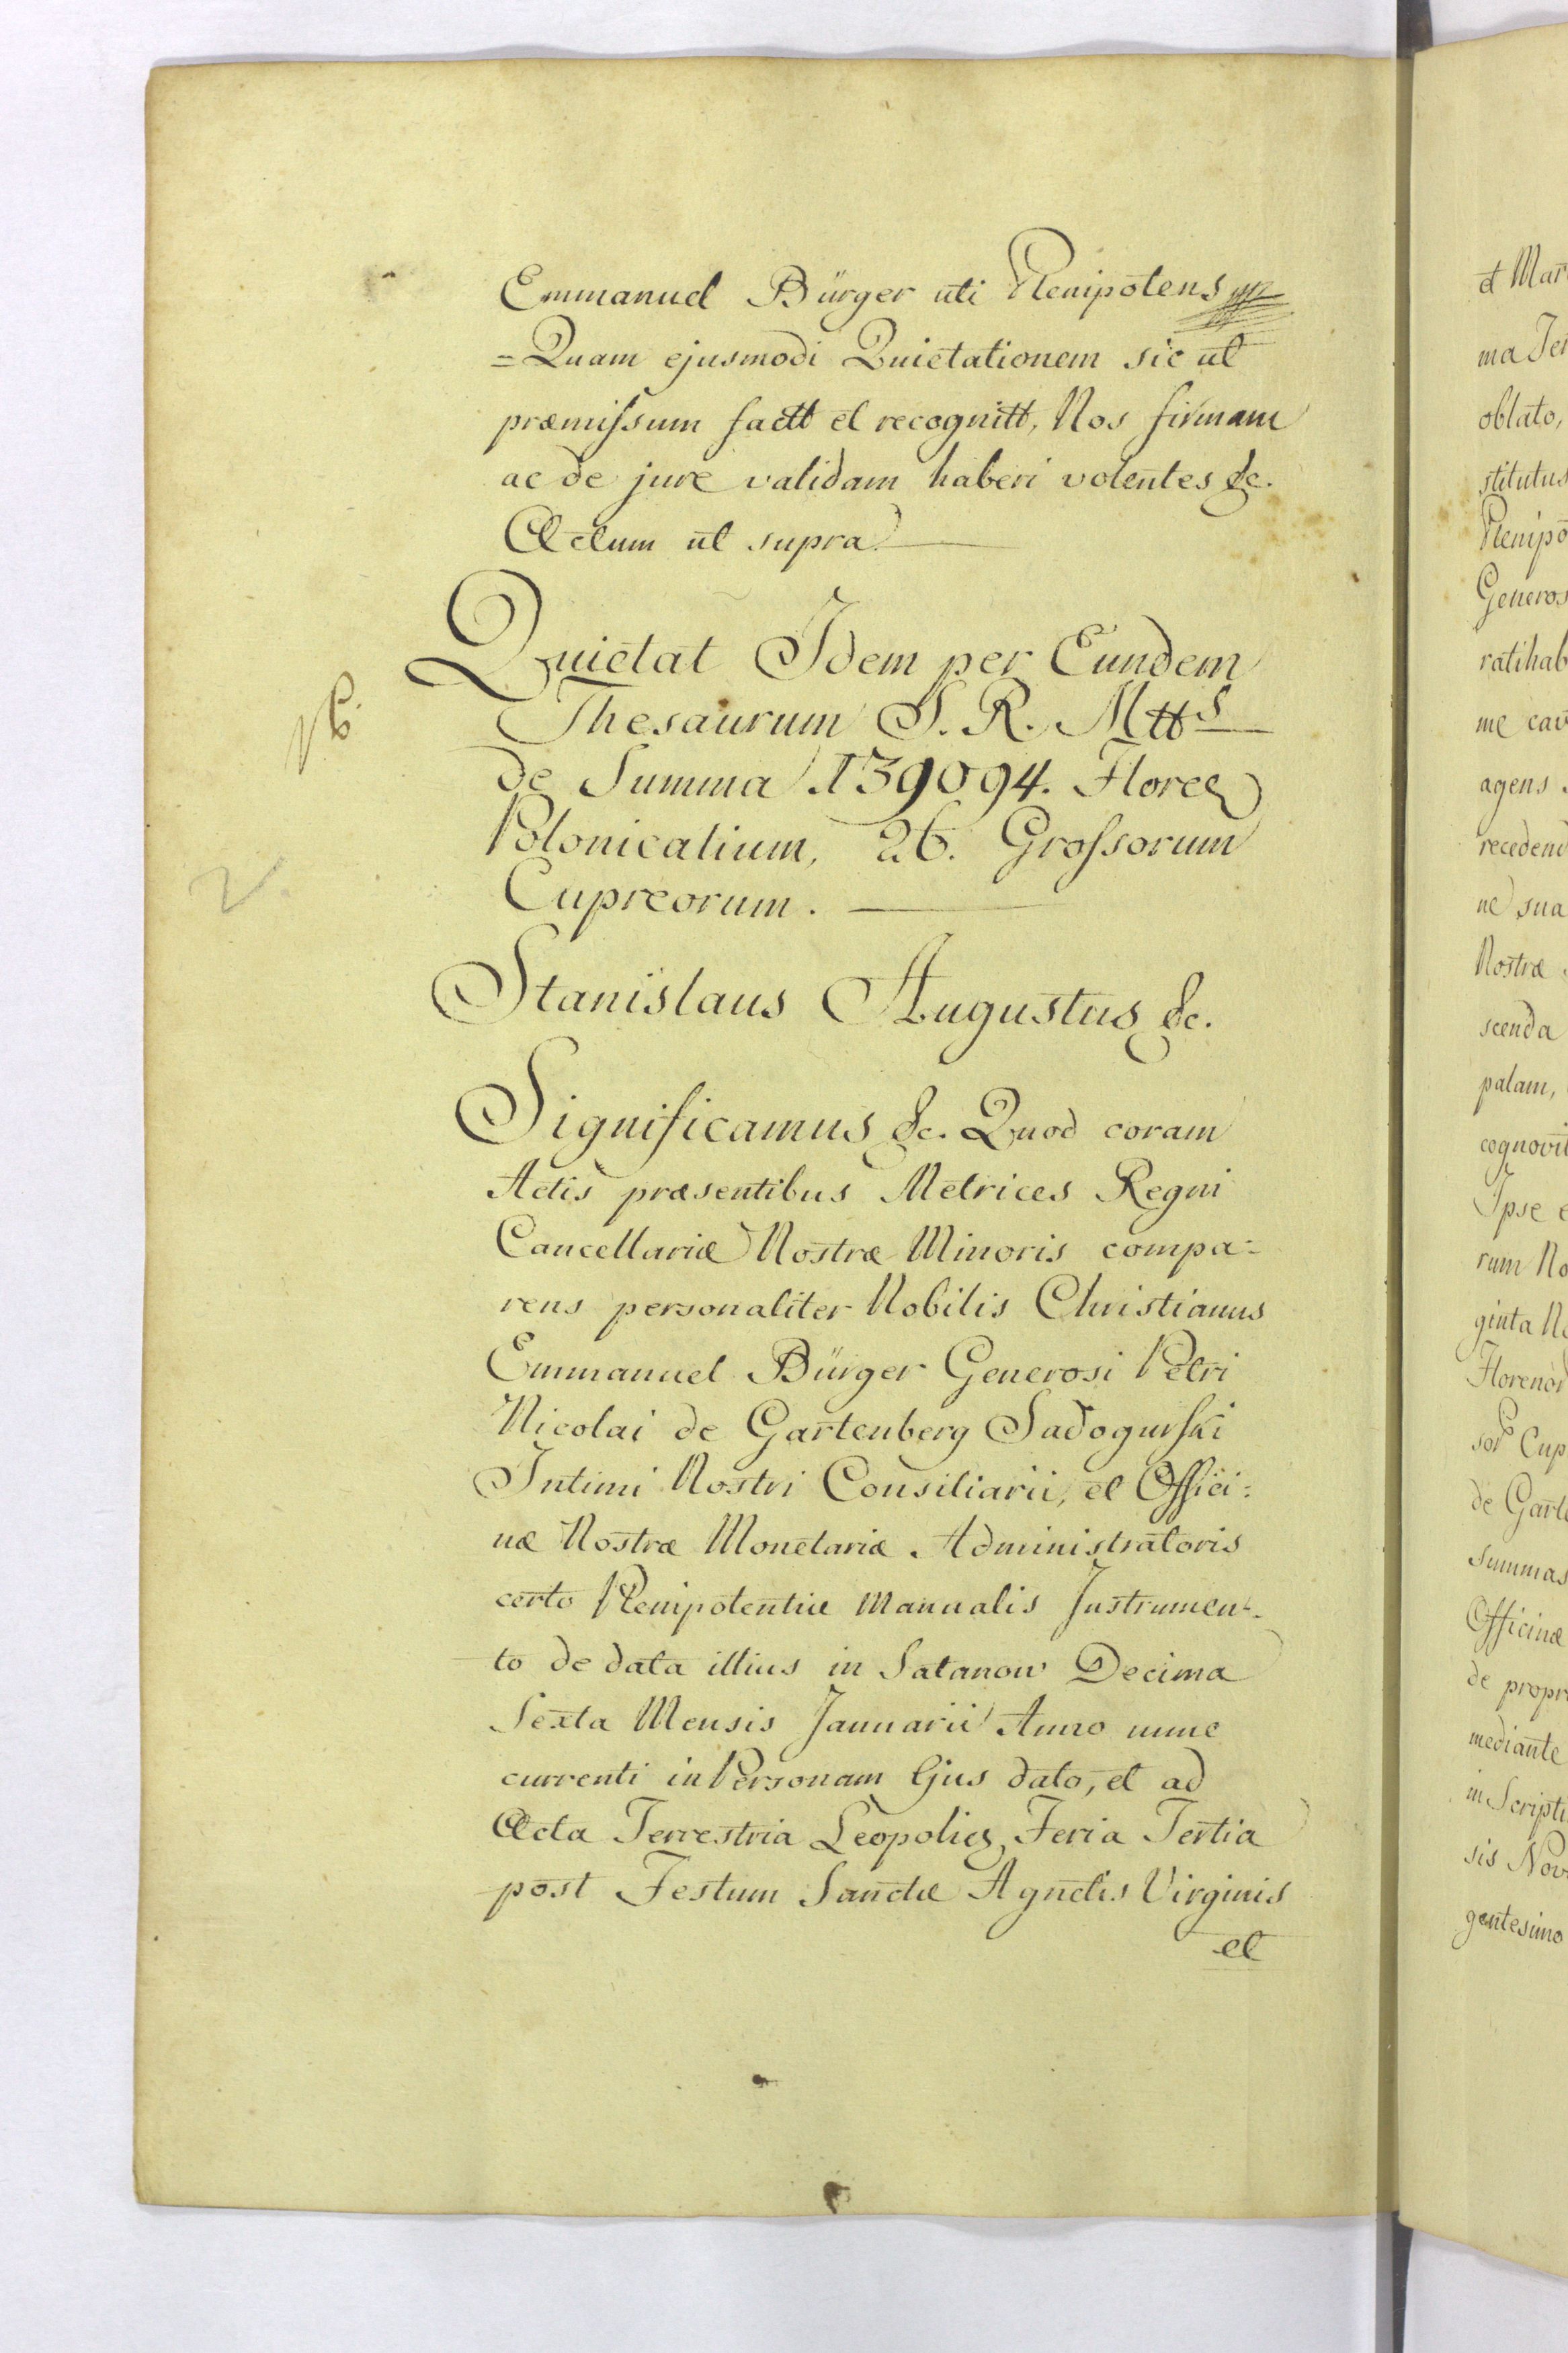 Emmanuel Bürger uti Plenipotens
=Quam ejusmodi Quietationem sic ut
præmissum factt et recognitt, Nos firmam
ac de jure validam haberi volentes &c.
Actum ut supra.
Quietat Idem per Eundem
Thesaurum S. R. Mtts
de Summa 139094. Floren
Polonicalium, 26. Grossorum
Cupreorum.
Stanislaus Augustus &c.
Significamus &c. Quod coram
Actis præsentibus Metrices Regni
Cancellariæ Nostræ Minoris compa=
rens personaliter Nobilis Christianus
Emmanuel Bürger Generosi Petri
Nicolai de Gartenberg Sadogurski
Intimi Nostri Consiliarii, et Offici=
næ Nostræ Monetariæ Administratoris
certo Plenipotentiæ Manualis Instrumen=
to de data illius in Satanow Decima
Sexta Mensis Januarii Anno nunc
currenti in Personam Ejus dato, et ad
Acta Terrestria Leopolien Feria Tertia
post Festum Sanctæ Agnetis Virginis
et
et Mar
ma Ter
oblato,
stitutus
Plenipo
Generos
ratihab
me cav
agens
recedend
ne sua
Nostræ
scenda
palam,
cognovit
Ipse e
rum No
ginta No
Florenor
sor Cup
de Garte
Summas
Officinæ
de propri
mediante
in Scripti
sis Nov
gentesimo